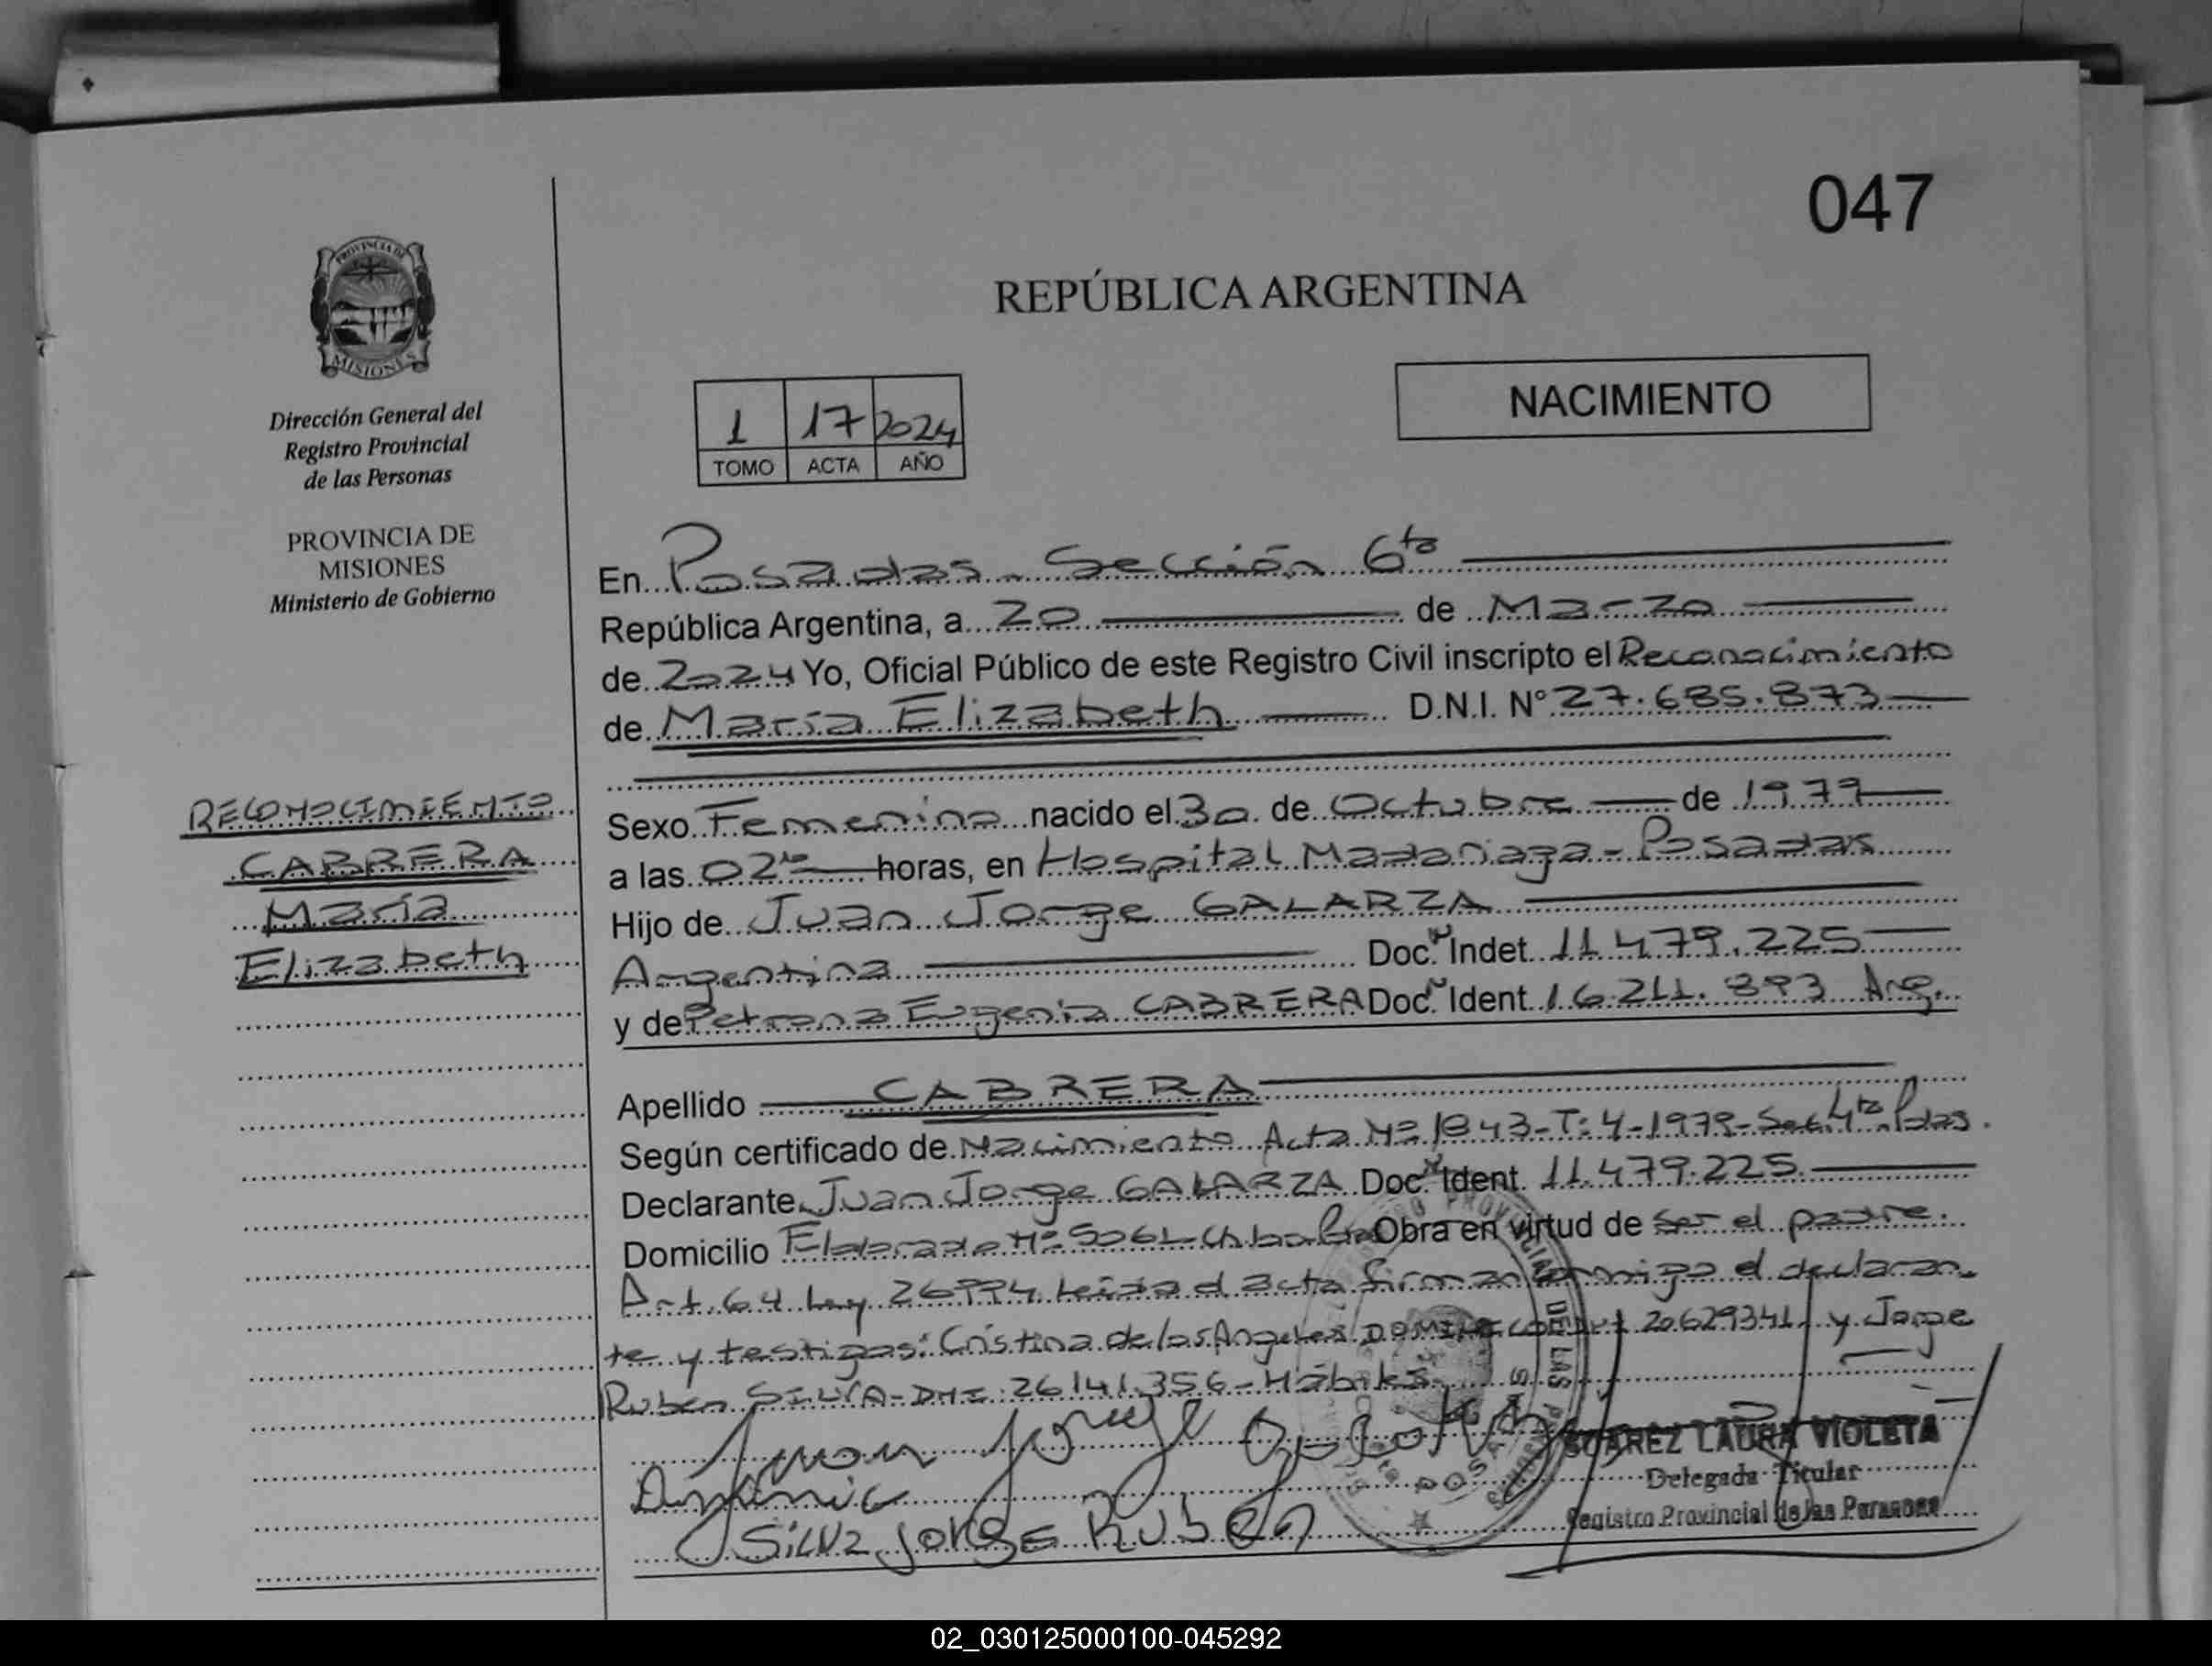 047
PROVINCIA DE
MISIONES
REPÚBLICA ARGENTINA
NACIMIENTO
1 17 2024
TOMO ACTA AÑO
Dirección General del
Registro Provincial
de las Personas
PROVINCIA DE
MISIONES
Ministerio de Gobierno
RECONOCIMIENTO
CABRERA
María
Elizabeth
En Posadas - Sección 6ta
República Argentina, a 20 de Marzo
de 2024 Yo, Oficial Público de este Registro Civil inscripto el Reconocimiento
de María Elizabeth D.N.I. N° 27.685.873
Sexo Femenino nacido el 30 de Octubre de 1979
a las 02 horas, en Hospital Madariaga - Posadas
Hijo de Juan Jorge GALARZA
Argentina Doc. Indet. 11.479.225
y de Petrona Eugenia CABRERA Doc. Ident. 16.211.893 Arg.
Apellido CABRERA
Según certificado de Nacimiento Acta Nº 1843-T:4-1979-Sec.4ta Pdas.
Declarante Juan Jorge GALARZA Doc. Ident. 11.479.225
Domicilio Nº 5061 Obra en virtud de ser el padre.
Art. 64 Ley 26994 Leída el acta firman conmigo el declaran-
te y testigos: Cristina de los Angeles 20629341 y Jorge
Ruben SILVA - DNI: 26141.356 - Hábiles
Juan Jorge
SUAREZ LAURA VIOLETA
Delegada Titular
Registro Provincial de las Personas
Silva Jorge Ruben
02_030125000100-045292